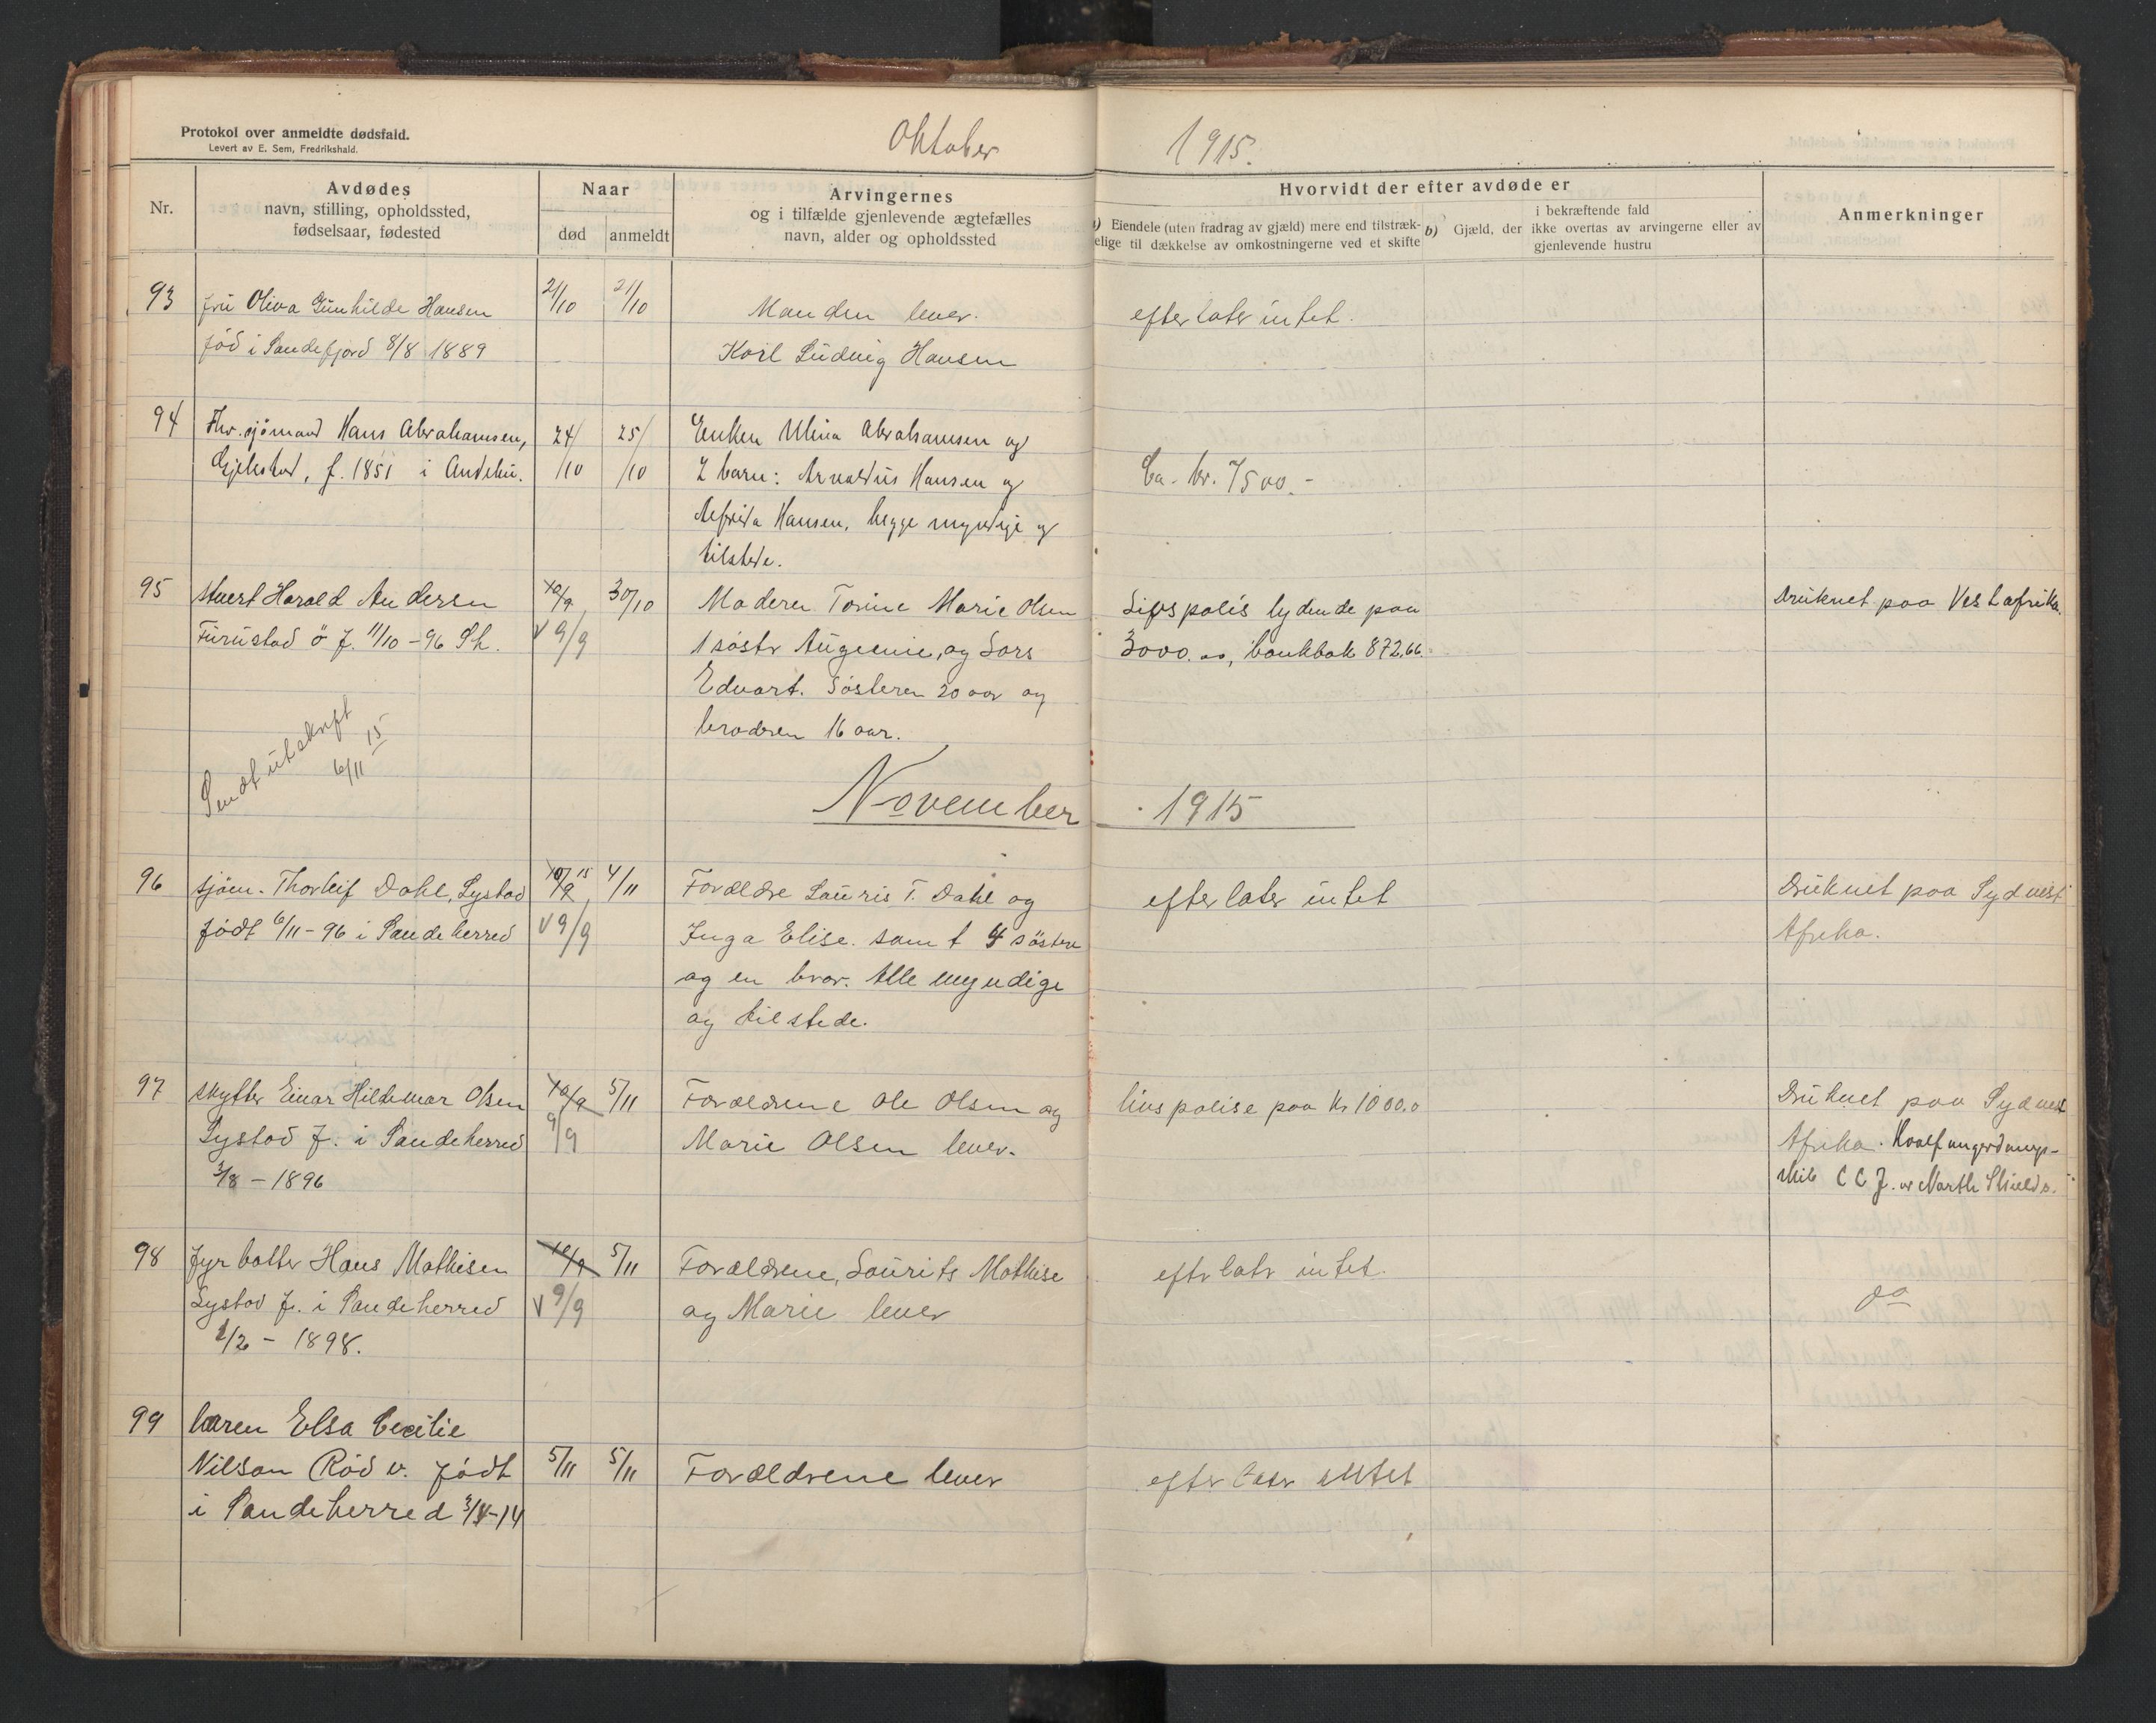 Protokol over anmeldte dødsfald.
Levert av E. Sem, Fredrikshald.
Oktober 1915.
Nr.
Avdødes
navn, stilling, opholdssted,
fødselsaar, fødested
Naar
død anmeldt
Arvingernes
og i tilfælde gjenlevende ægtefælles
navn, alder og opholdssted
Hvorvidt der efter avdøde er
a) Eiendele (uten fradrag av gjæld) mere end tilstræk-
kelige til dækkelse av omkostningerne ved et skifte
b) Gjæld, der
i bekræftende fald
ikke overtas av arvingerne eller av
gjenlevende hustru
Anmerkninger
93 fru Oliva Gunhilde Hansen 21/10 21/10 Manden lever. efterlater intet.
fød i Sandefjord 8/8 1889 Karl Ludvig Hansen
94 Fhv. sjømand Hans Abrahamsen, 24/10 25/10 Enken Ulina Abrahamsen og
Gjekstad, f. 1851 i Andebu. 2 barn: Arnoldus Hansen og Ca. kr. 7500.-
Alfrida Hansen, begge myndige og
tilstede.
95 stuert Harald Andersen 10/9 30/10 Moderen Torine Marie Olsen Livspolis lydende paa Druknet paa Vestafrika.
Furustad ö f. 11/10-96 Sh. V 9/9 1 søstr Augenie, og Lars 3000.00, bankbok 872,66.
Edvart. Søsteren 20 aar og
broderen 16 aar.
Sendt utskrift
6/11 15
November 1915
96 sjöm. Thorleif Dahl, Lystad 10/9 15 4/11 Forældre Lauris T. Dahl og efterlater intet Druknet paa Sydvest
født 6/11-96 i Sandeherred V 9/9 Inga Elise. samt 4 søstre Afrika.
og en bror. Alle myndige
og tilstede.
97 skytter Einar Hildemar Olsen 10/9 5/11 Forældrene Ole Olsen og livspolise paa Kr 1000.0 Druknet paa Sydvest
Lystad f. i Sandeherred 9/9 Marie Olsen lever. Afrika. Hvalfangerdamp-
3/8 - 1896 skib C C J. av North Shields.
98 fyrbøtter Hans Mathisen 10/9 5/11 Forældrene, Laurits Mathise efterlatr intet. do
Lystad f. i Sandeherred V 9/9 og Marie lever
1/2 - 1898.
99 baren Elsa Cecilie
Nilsan Rød v. født 5/11 5/11 Forældrene lever efterlater intet
i Sandeherred 3/4-14